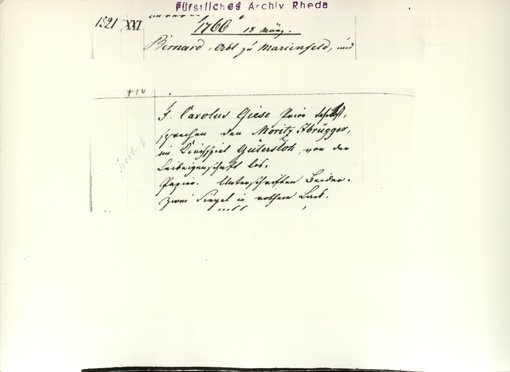 Fürstliches Archiv Rheda
1521 XXI 1766 18 März.
Bernard, Abt zu Marienfeld, und
F. Carolus Giese Prior daselbst,
sprechen den Moritz Ibrügger,
im Kirchspiel Gütersloh, von der
Leibeigenschaft los.
Papier. Unterschriften Beider.
Zwei Siegel in rothem Lack.